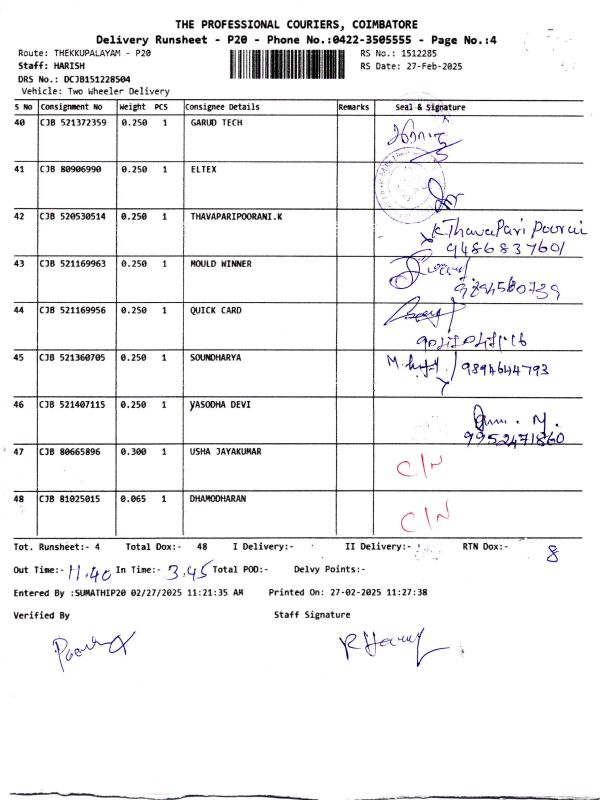 THE PROFESSIONAL COURIERS, COIMBATORE
Delivery Runsheet - P20 - Phone No.:0422-3505555 - Page No.:4
Route: THEKKUPALAYAM - P20
RS No.: 1512285
Staff: HARISH
RS Date: 27-Feb-2025
DRS No.: DCJB151228504
Vehicle: Two Wheeler Delivery
S No Consignment No Weight PCS Consignee Details Remarks Seal & Signature
40 CJB 521372359 0.250 1 GARUD TECH
41 CJB 80906990 0.250 1 ELTEX
42 CJB 520530514 0.250 1 THAVAPARIPOORANI.K
K Thavapari Poorani
9486837601
43 CJB 521169963 0.250 1 MOULD WINNER
44 CJB 521169956 0.250 1 QUICK CARD
45 CJB 521360705 0.250 1 SOUNDHARYA
9894644793
46 CJB 521407115 0.250 1 YASODHA DEVI
9952471860
47 CJB 80665896 0.300 1 USHA JAYAKUMAR
C/N
48 CJB 81025015 0.065 1 DHAMODHARAN
C/N
Tot. Runsheet:- 4 Total Dox:- 48 I Delivery:- II Delivery:- RTN Dox:- 8
Out Time:- 11.40 In Time:- 3.45 Total POD:- Delvy Points:-
Entered By :SUMATHIP20 02/27/2025 11:21:35 AM Printed On: 27-02-2025 11:27:38
Verified By Staff Signature